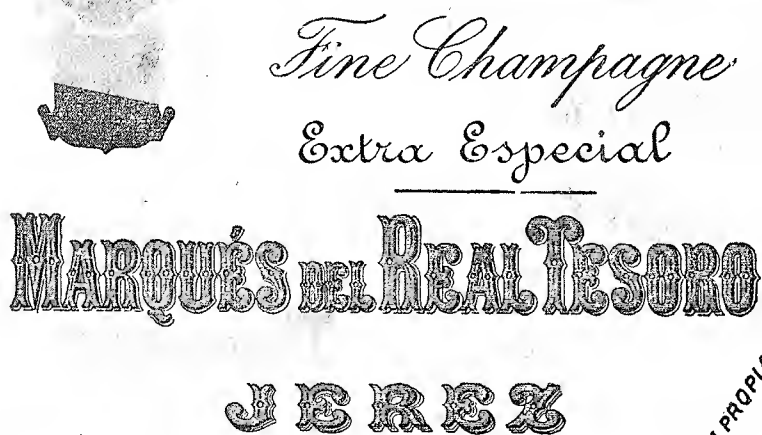 Fine Champagne
Extra Especial
MARQUÉS DEL REAL TESORO
JEREZ